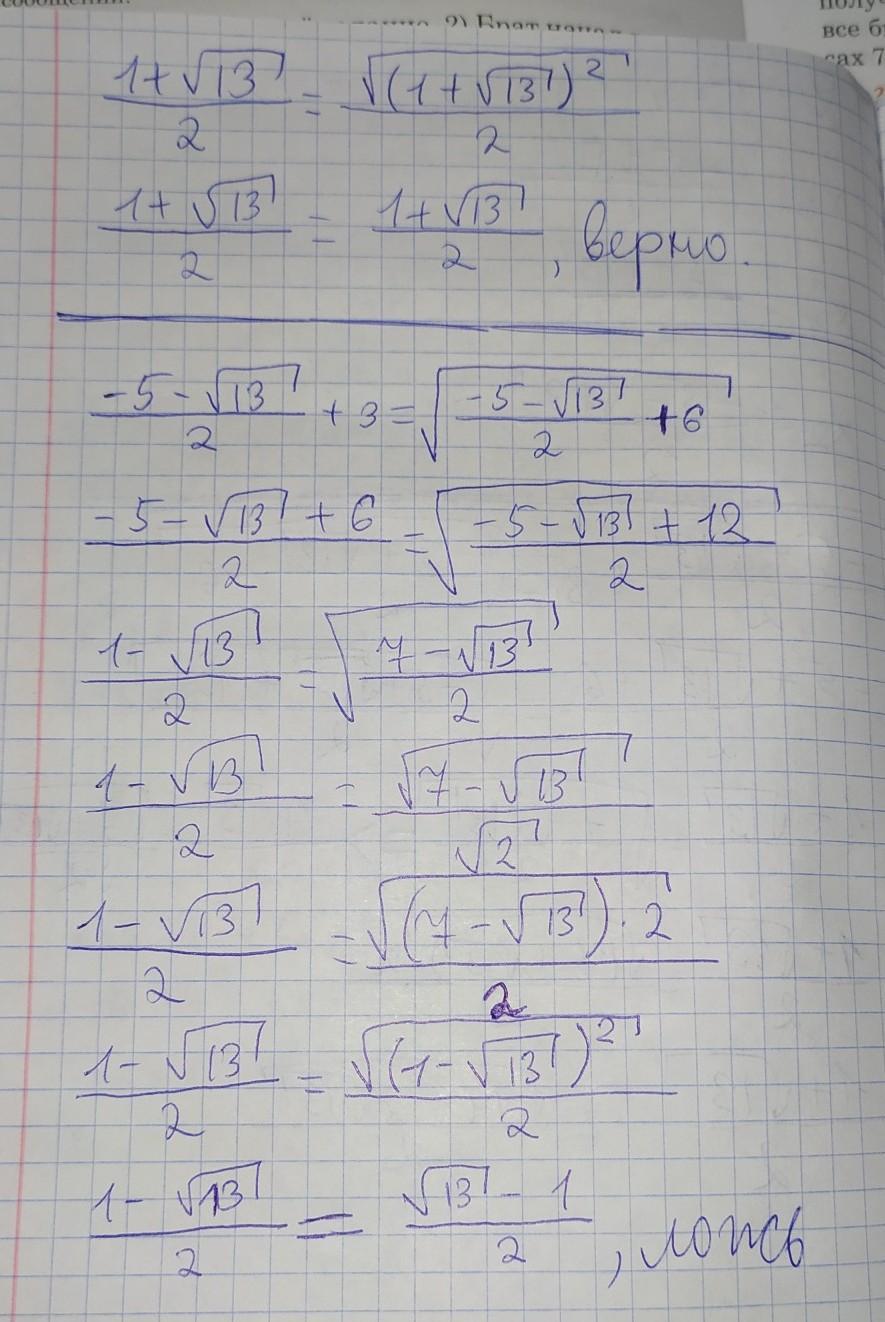 сообщении.
2) Брат
полу
все б
сах 7
\frac{1+\sqrt{13}}{2} = \frac{\sqrt{(1+\sqrt{13})^2}}{2}
\frac{1+\sqrt{13}}{2} = \frac{1+\sqrt{13}}{2}, верно.
\frac{-5-\sqrt{13}}{2} + 3 = \sqrt{\frac{-5-\sqrt{13}}{2} + 6}
\frac{-5-\sqrt{13}+6}{2} = \sqrt{\frac{-5-\sqrt{13}+12}{2}}
\frac{1-\sqrt{13}}{2} = \sqrt{\frac{7-\sqrt{13}}{2}}
\frac{1-\sqrt{13}}{2} = \frac{\sqrt{7-\sqrt{13}}}{\sqrt{2}}
\frac{1-\sqrt{13}}{2} = \frac{\sqrt{(7-\sqrt{13}) \cdot 2}}{2}
\frac{1-\sqrt{13}}{2} = \frac{\sqrt{(1-\sqrt{13})^2}}{2}
\frac{1-\sqrt{13}}{2} = \frac{\sqrt{13}-1}{2}, ложь